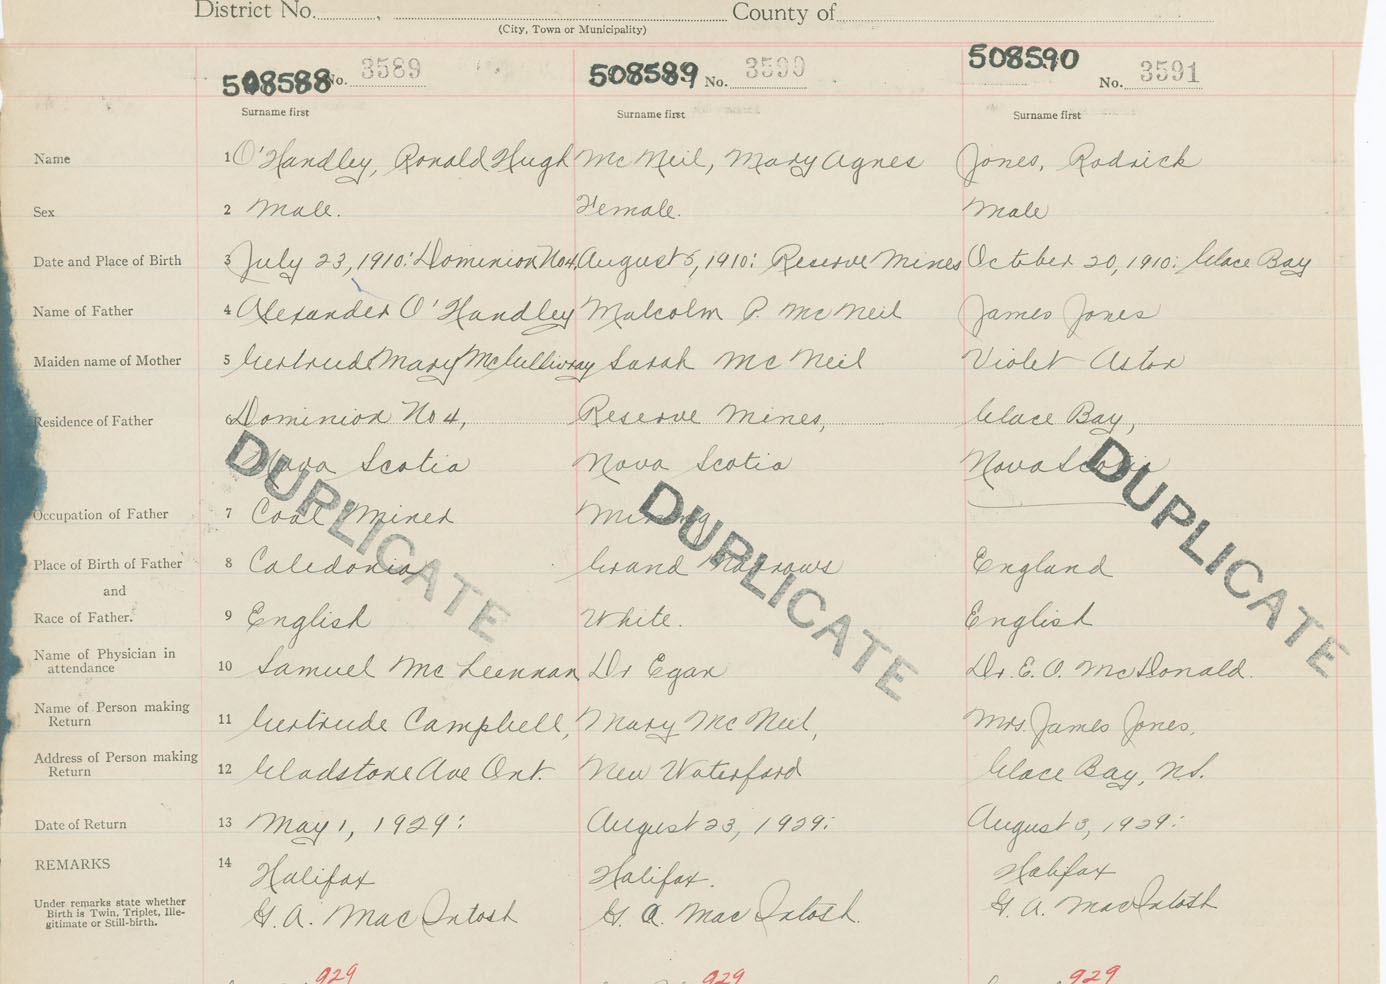 District No. , County of
(City, Town or Municipality)
508588 No. 3589 508589 No. 3590 508590 No. 3591
Surname first Surname first Surname first
Name 1 O'Handley, Ronald Hugh McNeil, Mary Agnes Jones, Rodrick
Sex 2 Male. Female. Male
Date and Place of Birth 3 July 23, 1910: Dominion No 4, August 5, 1910: Reserve Mines October 20, 1910: Glace Bay
Name of Father 4 Alexander O'Handley Malcolm P. McNeil James Jones
Maiden name of Mother 5 Gertrude Mary McGillivray Sarah McNeil Violet Astor
Residence of Father 6 Dominion No 4, Reserve Mines, Glace Bay,
Nova Scotia Nova Scotia Nova Scotia
DUPLICATE DUPLICATE DUPLICATE
Occupation of Father 7 Coal Miner Mining
Place of Birth of Father 8 Caledonia Grand Narrows England
and
Race of Father. 9 English White. English
Name of Physician in
attendance 10 Samuel McLennan Dr Egan Dr. E. O. McDonald.
Name of Person making
Return 11 Gertrude Campbell, Mary McNeil, Mrs. James Jones,
Address of Person making
Return 12 Gladstone Ave Ont. New Waterford Glace Bay, N.S.
Date of Return 13 May 1, 1929: August 23, 1929: August 3, 1929:
REMARKS 14 Halifax Halifax. Halifax
Under remarks state whether
Birth is Twin, Triplet, Ille-
gitimate or Still-birth. G. A. MacIntosh G. A. MacIntosh. G. A. MacIntosh
929 929 929